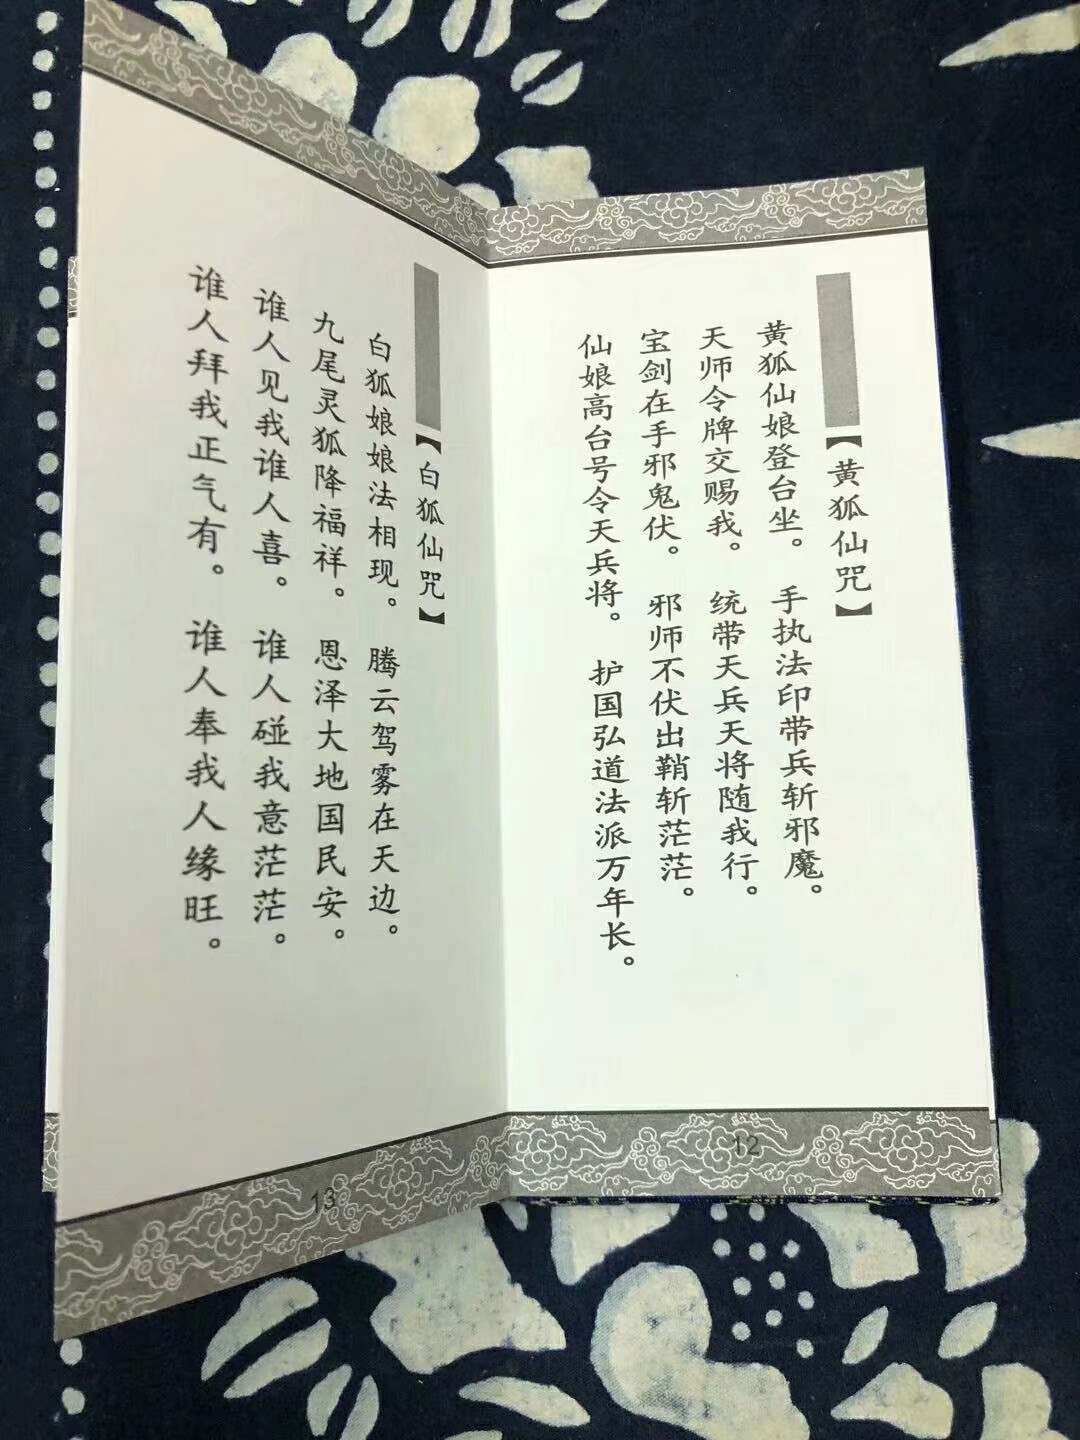 【黄狐仙咒】
黄狐仙娘登台坐。 手执法印带兵斩邪魔。
天师令牌交赐我。 统带天兵天将随我行。
宝剑在手邪鬼伏。 邪师不伏出鞘斩茫茫。
仙娘高台号令天兵将。 护国弘道法派万年长。
12
【白狐仙咒】
白狐娘娘法相现。 腾云驾雾在天边。
九尾灵狐降福祥。 恩泽大地国民安。
谁人见我谁人喜。 谁人碰我意茫茫。
谁人拜我正气有。 谁人奉我人缘旺。
13